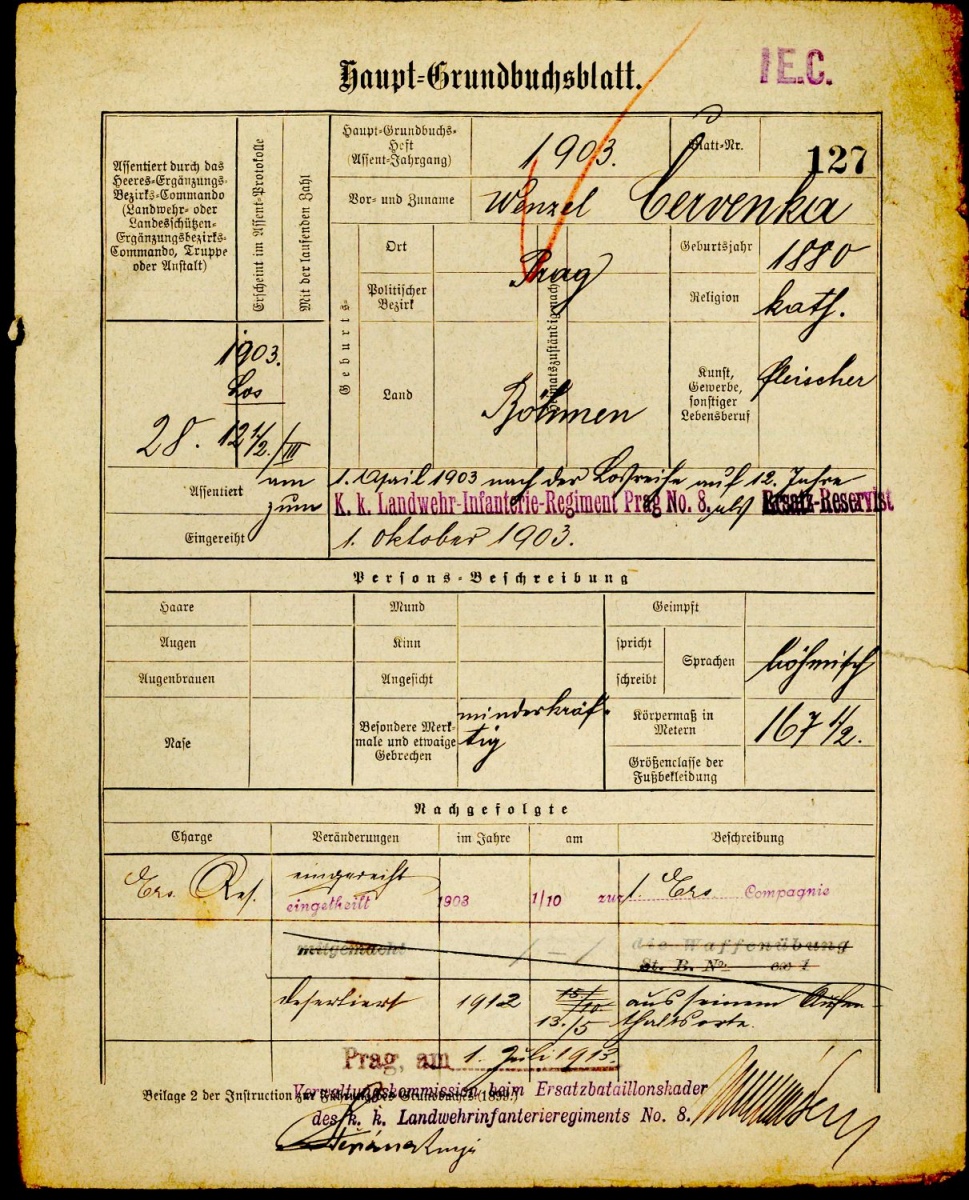 Haupt-Grundbuchsblatt.
IE.C.
Assentiert durch das
Heeres-Ergänzungs-
Bezirks-Commando
(Landwehr- oder
Landesschützen-
Ergänzungsbezirks-
Commando, Truppe
oder Anstalt)
Erscheint im Assent-Protokolle
Mit der laufenden Zahl
Haupt-Grundbuchs-
Heft
(Assent-Jahrgang)
1903.
Blatt-Nr.
127
Vor- und Zuname
Wenzel Červenka
Geburts-
Ort
Prag
Politischer
Bezirk
Land
Böhmen
Heimatszuständig nach
Geburtsjahr
1880
Religion
kath.
Kunst,
Gewerbe,
sonstiger
Lebensberuf
fleischer
1903.
Los
28.
12 1/2./III
Assentiert
am 1. April 1903 nach der Losreihe auf 12. Jahre
zum K. k. Landwehr-Infanterie-Regiment Prag No. 8. als Ersatz-Reservist
Eingereiht
1. Oktober 1903.
Persons-Beschreibung
Haare
Mund
Geimpft
Augen
Kinn
spricht
Sprachen
böhmisch
Augenbrauen
Angesicht
schreibt
Nase
Besondere Merk-
male und etwaige
Gebrechen
minderkräf-
tig
Körpermaß in
Metern
167 1/2.
Größenclasse der
Fußbekleidung
Nachgefolgte
Charge
Veränderungen
im Jahre
am
Beschreibung
Ers. Res.
eingereiht
eingetheilt
1903
1/10
zur 1. Ers Compagnie
mitgemacht
die Waffenübung
St. B. No. ex 1
desertiert
1912
15/10
13./5
aus seinem Aufen-
thaltsorte.
Prag, am 1. Juli 1913.
Beilage 2 der Instruction zur Führung des Grundbuches (1899.)
Verwaltungskommission beim Ersatzbataillonskader
des k. k. Landwehrinfanterieregiments No. 8.